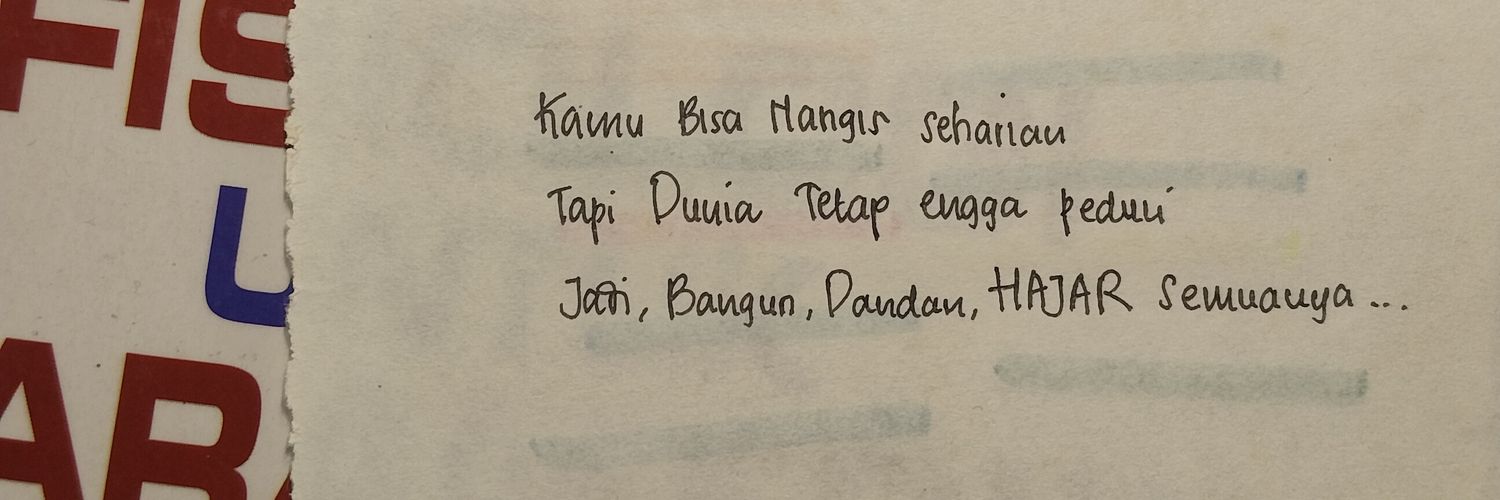 FIS
U
ABA
Kamu Bisa Nangis seharian
Tapi Dunia Tetap engga peduli
Jadi, Bangun, Dandan, HAJAR semuanya ...